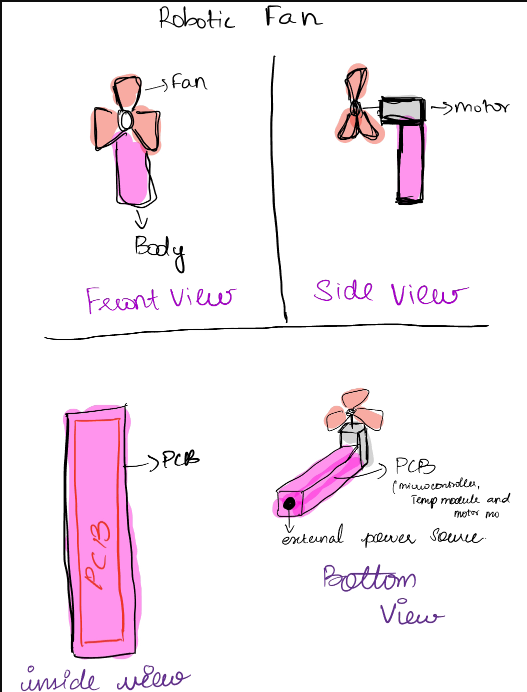 Robotic Fan
Fan
Body
Front View
motor
Side View
PCB
PCB
inside view
PCB
(microcontroller,
Temp module and
motor mo
external power source.
Bottom
View